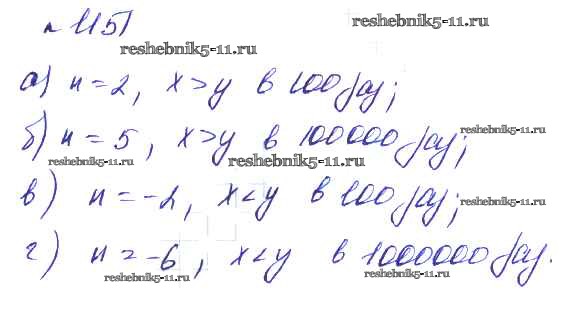 № 1151
reshebnik5-11.ru
reshebnik5-11.ru
а) n = 2, x > y в 100 раз;
б) n = 5, x > y в 100000 раз;
reshebnik5-11.ru
reshebnik5-11.ru
reshebnik5-11.ru
в) n = -2, x < y в 100 раз;
reshebnik5-11.ru
г) n = -6, x < y в 1000000 раз.
reshebnik5-11.ru
reshebnik5-11.ru